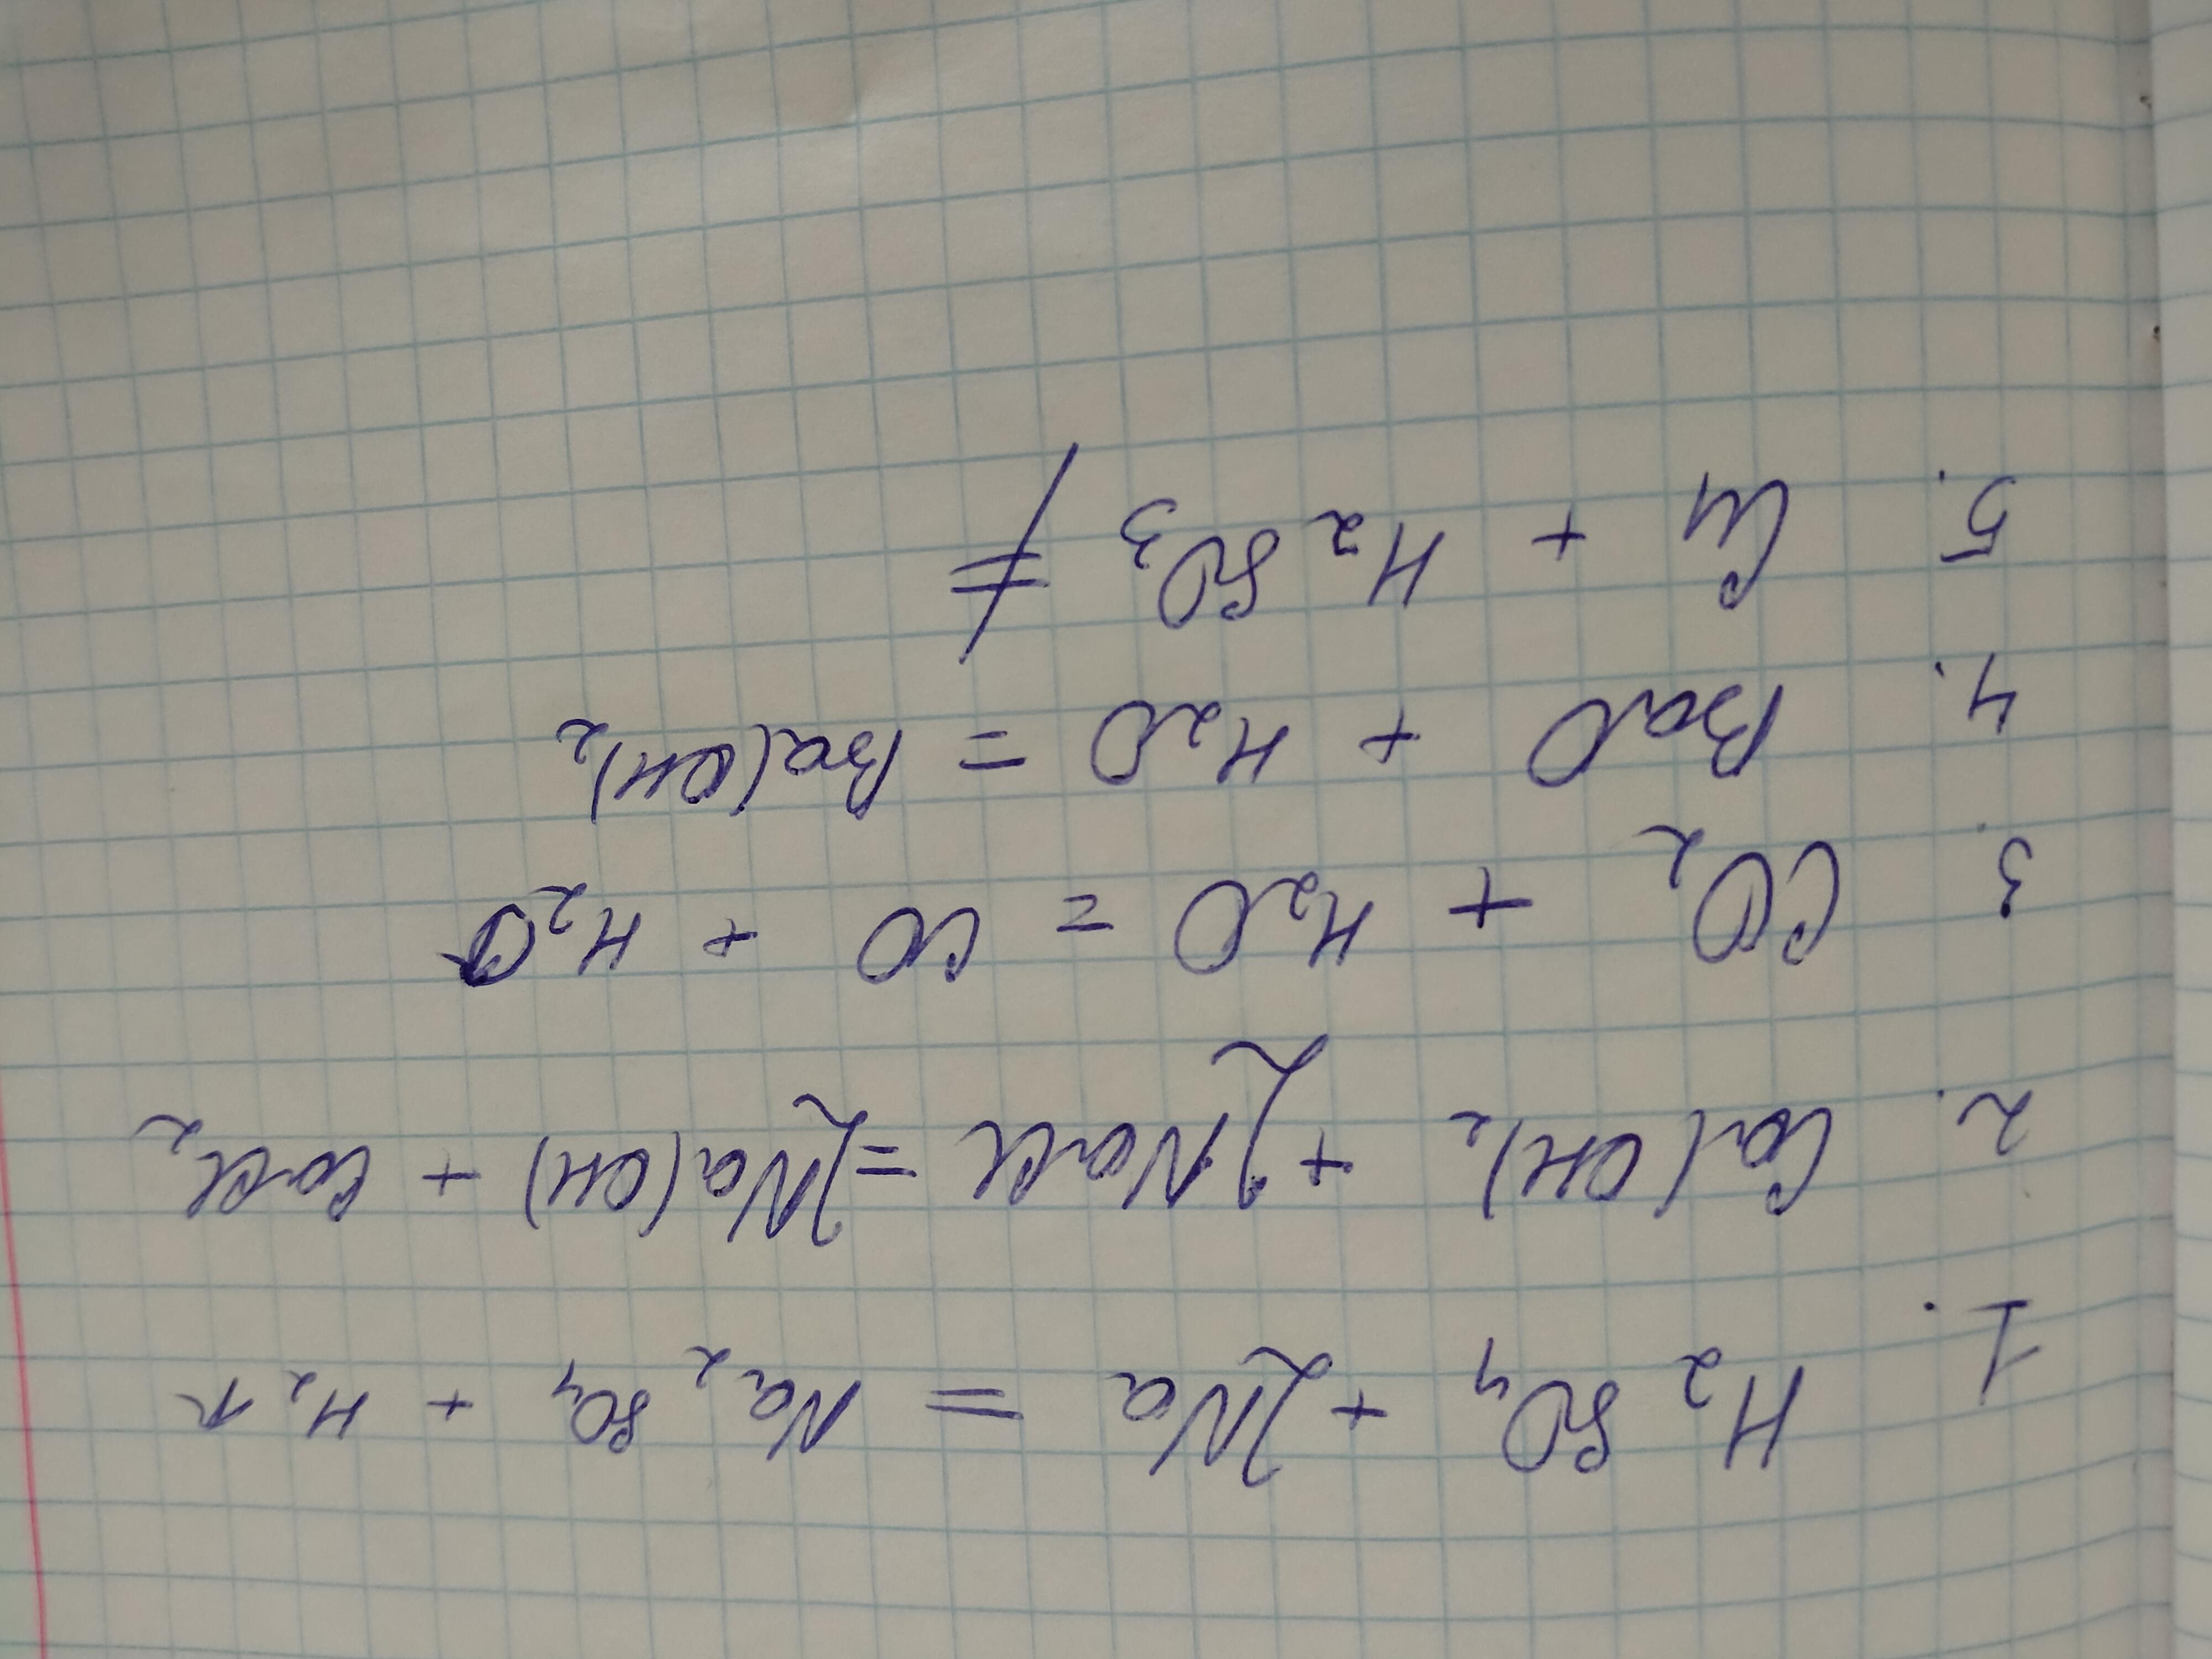 1. H₂SO₄ + 2Na = Na₂SO₄ + H₂↑
2. Ca(OH)₂ + 2NaCl = 2Na(OH) + CaCl₂
3. CO₂ + H₂O = CO + H₂O
4. BaO + H₂O = Ba(OH)₂
5. Cu + H₂SO₃ ≠